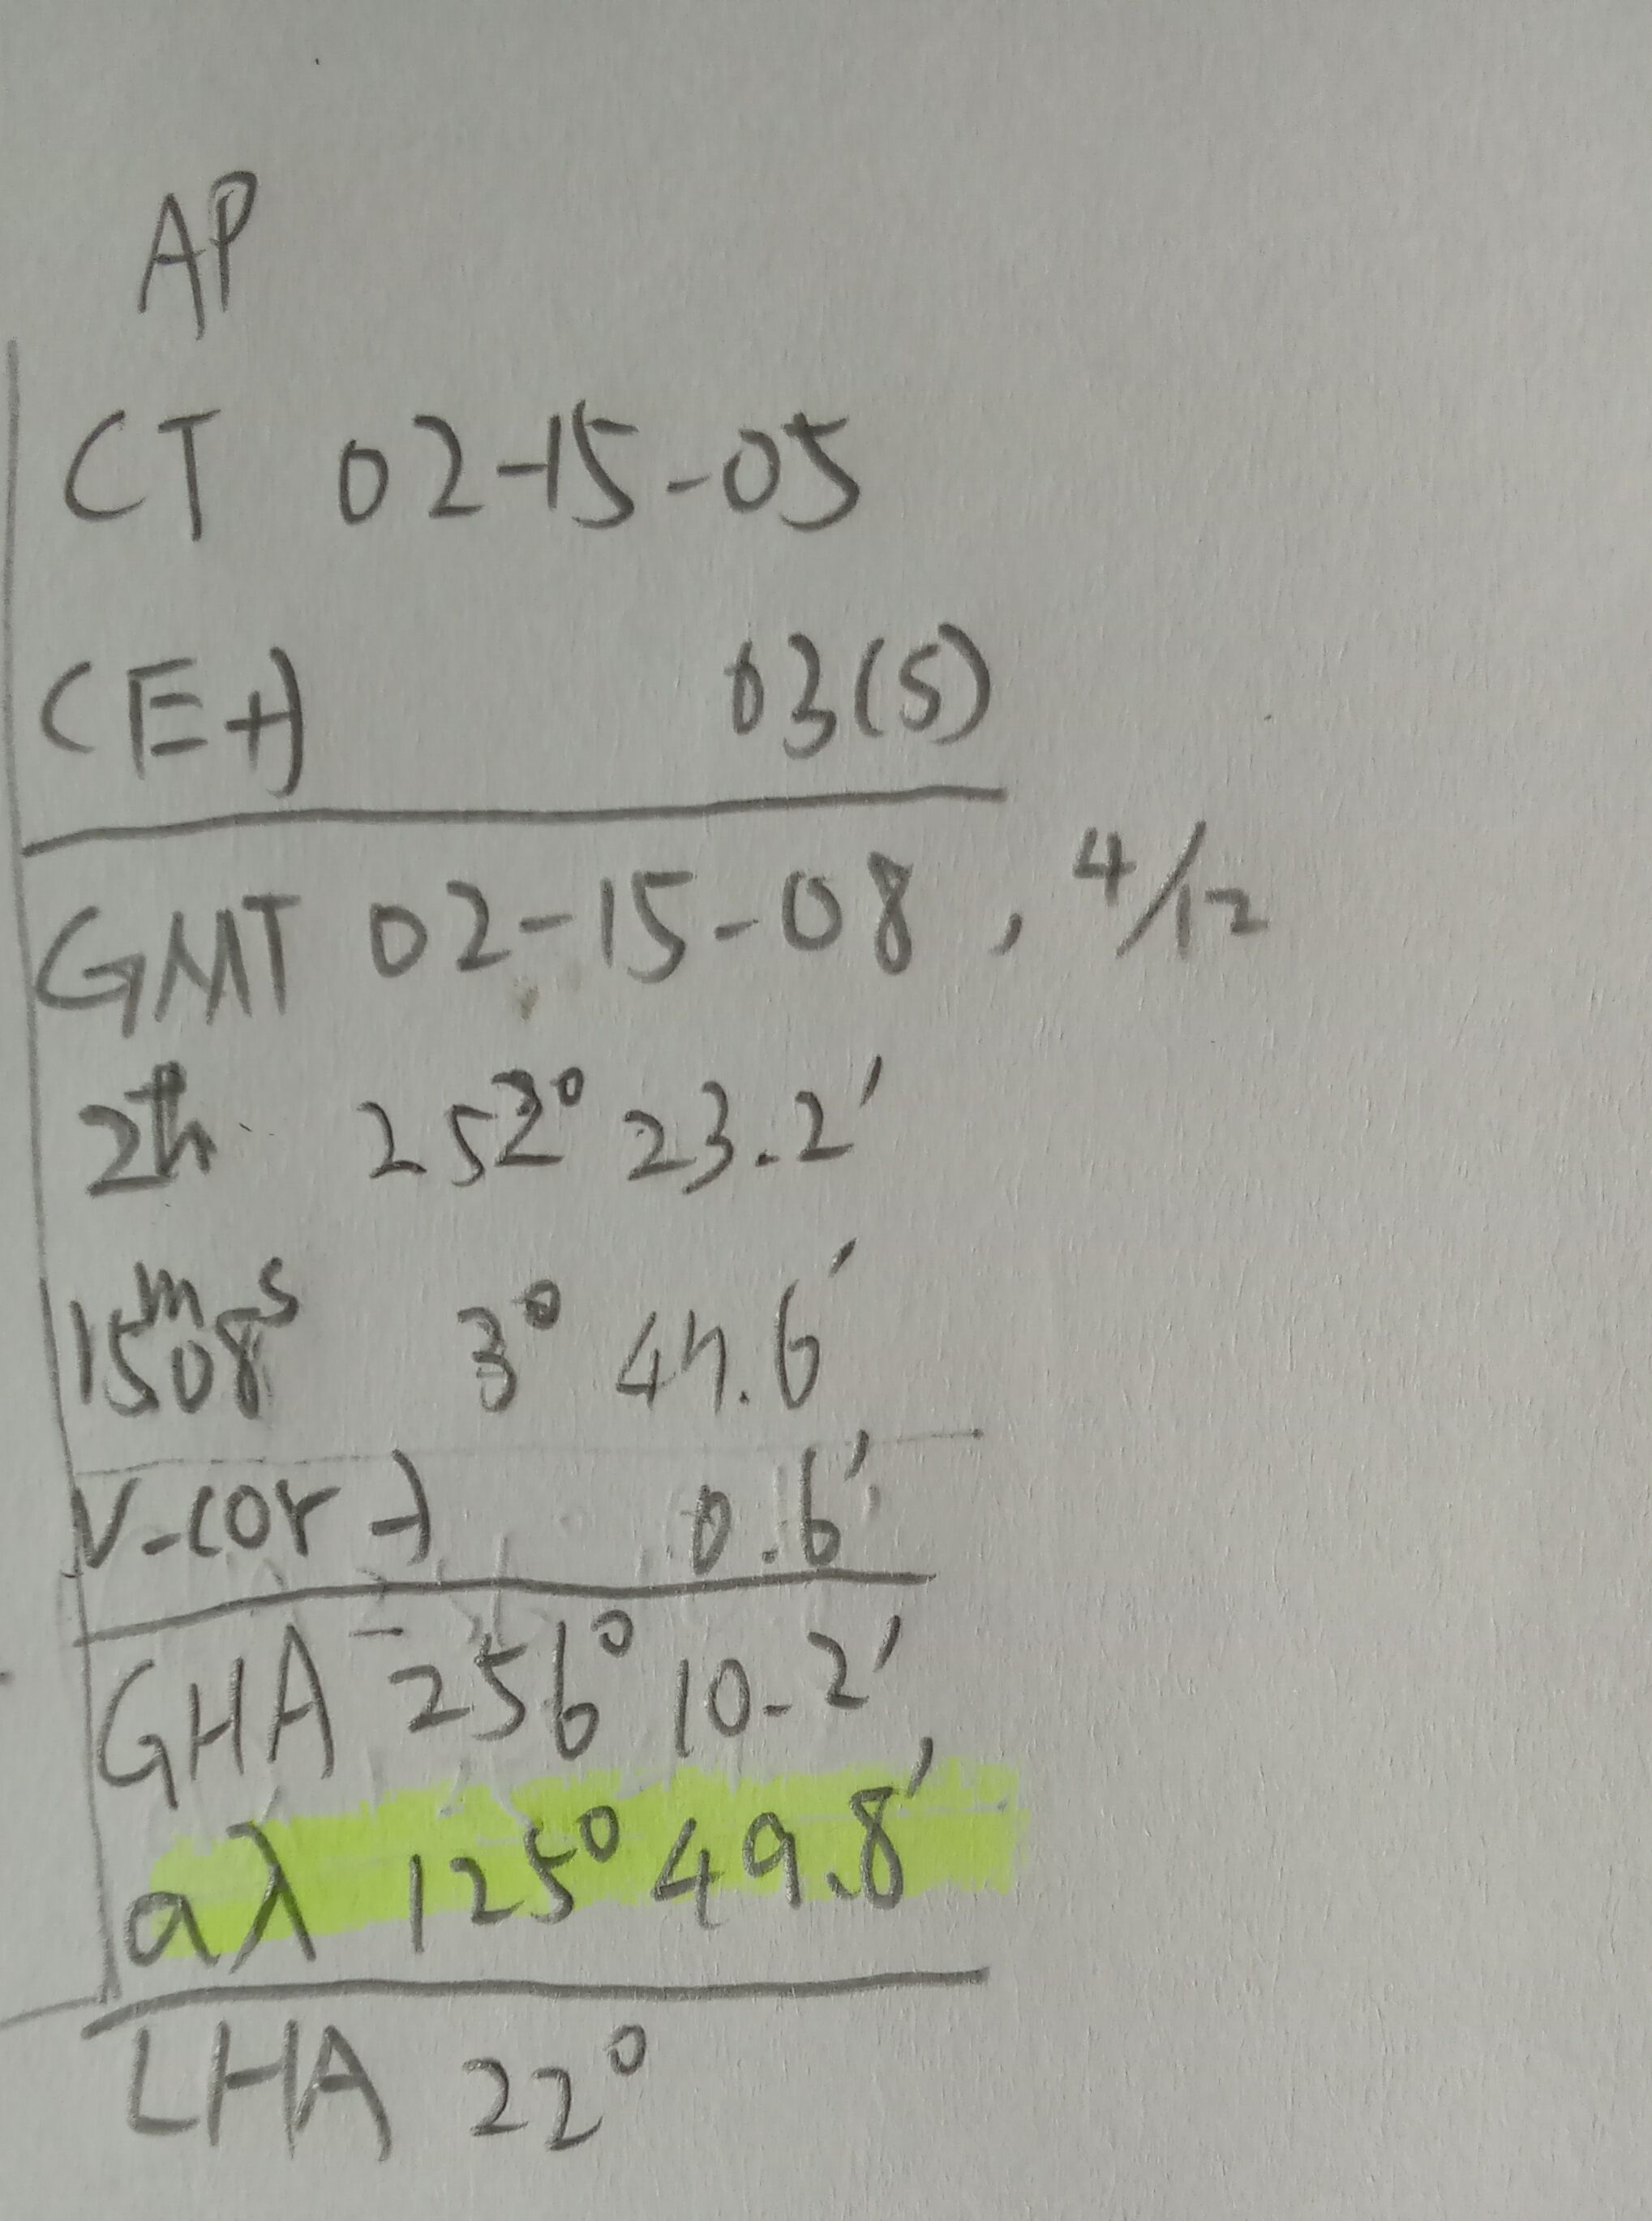 AP
CT 02-15-05
CE+) 03(S)
GMT 02-15-08, 4/12
2h 252° 23.2'
15m08s 3° 47.6'
V-cor -) 0.6'
GHA 256° 10.2'
aλ 125° 49.8'
LHA 22°